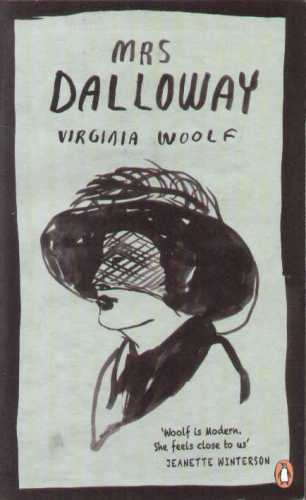 MRS
DALLOWAY
VIRGINIA WOOLF
'Woolf is Modern.
She feels close to us'
JEANETTE WINTERSON